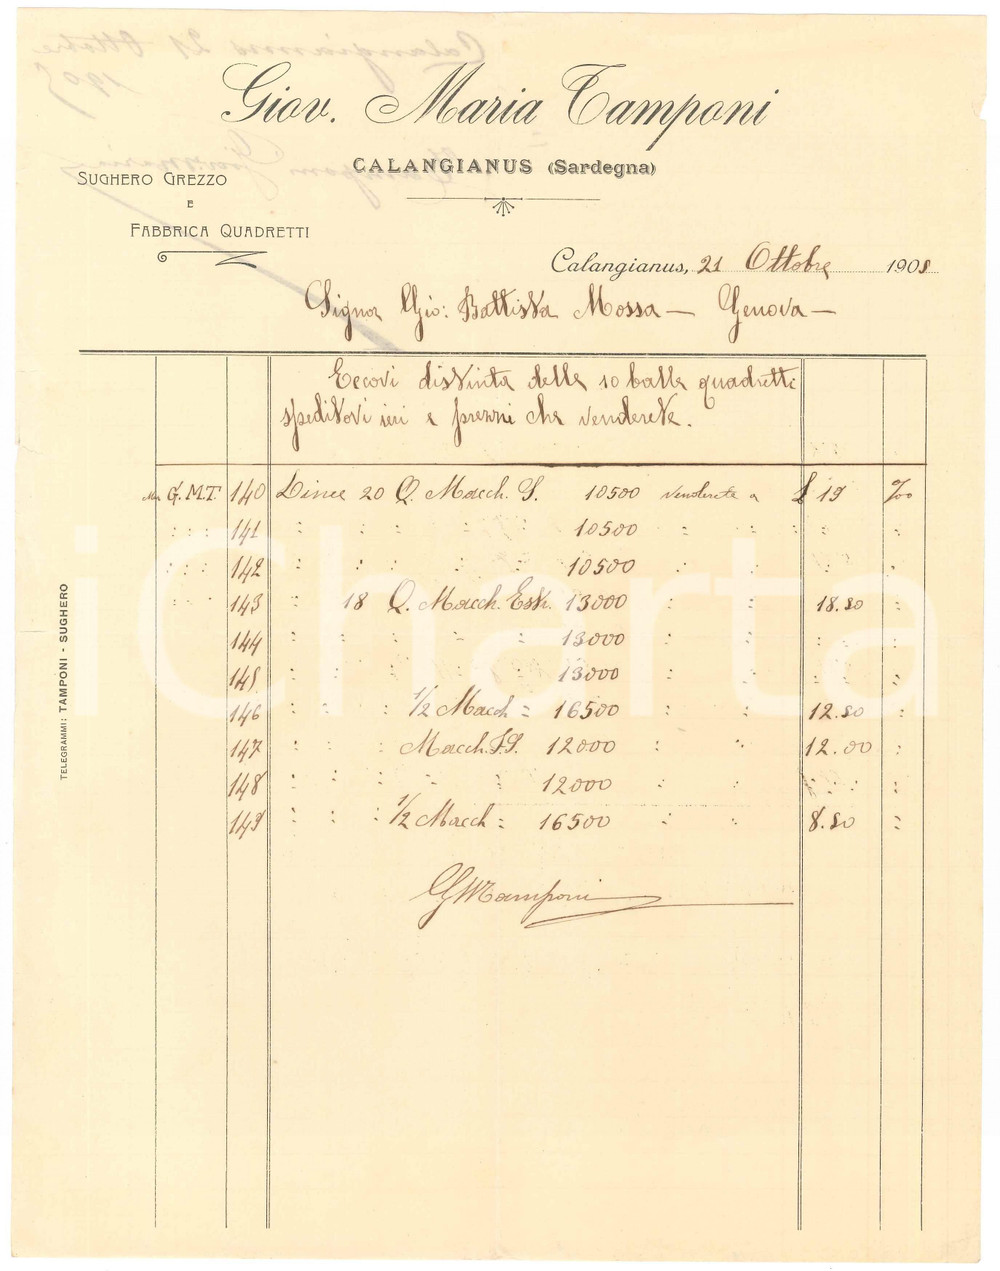 Giov. Maria Tamponi
CALANGIANUS (Sardegna)
SUGHERO GREZZO
E
FABBRICA QUADRETTI
Calangianus, 21 Ottobre 1908
Signor Gio: Battista Mossa — Genova —
Eccovi distinta delle 10 balle quadretti
speditovi ieri e prezzi che venderete.
G.M.T. 140 Linee 20 Q. Macch. S. 10500 venderete a £ 19 %00
" " " 141 " " " " " 10500 " " " "
" " " 142 " " " " " 10500 " " " "
" " " 143 " 18 Q. Macch. Est. 13000 " " 18.50 "
144 " " " " " 13000 " " " "
145 " " " " " 13000 " " " "
146 " " " 1/2 Macch = 16500 " " 12.50 "
147 " " " Macch. F.S. 12000 " " 12.00 "
148 " " " " " 12000 " "
149 " " " 1/2 Macch = 16500 " " 8.50 "
GMTamponi
TELEGRAMMI: TAMPONI - SUGHERO
iCharta